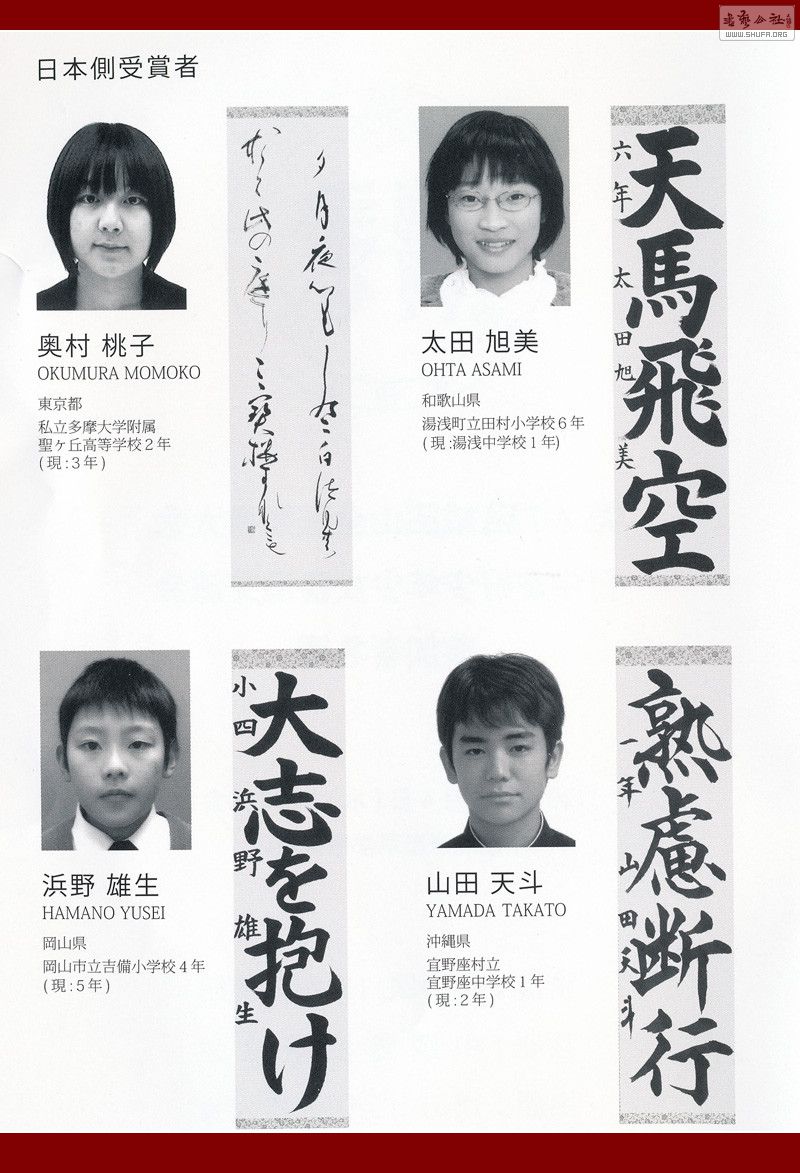 WWW.SHUFA.ORG
日本側受賞者
奥村 桃子
OKUMURA MOMOKO
東京都
私立多摩大学附属
聖ヶ丘高等学校２年
(現:３年)
太田 旭美
OHTA ASAMI
和歌山県
湯浅町立田村小学校６年
(現:湯浅中学校１年)
天馬飛空
六年 太田旭美
浜野 雄生
HAMANO YUSEI
岡山県
岡山市立吉備小学校４年
(現:５年)
大志を抱け
小四 浜野雄生
山田 天斗
YAMADA TAKATO
沖縄県
宜野座村立
宜野座中学校１年
(現:２年)
熟慮断行
一年 山田天斗